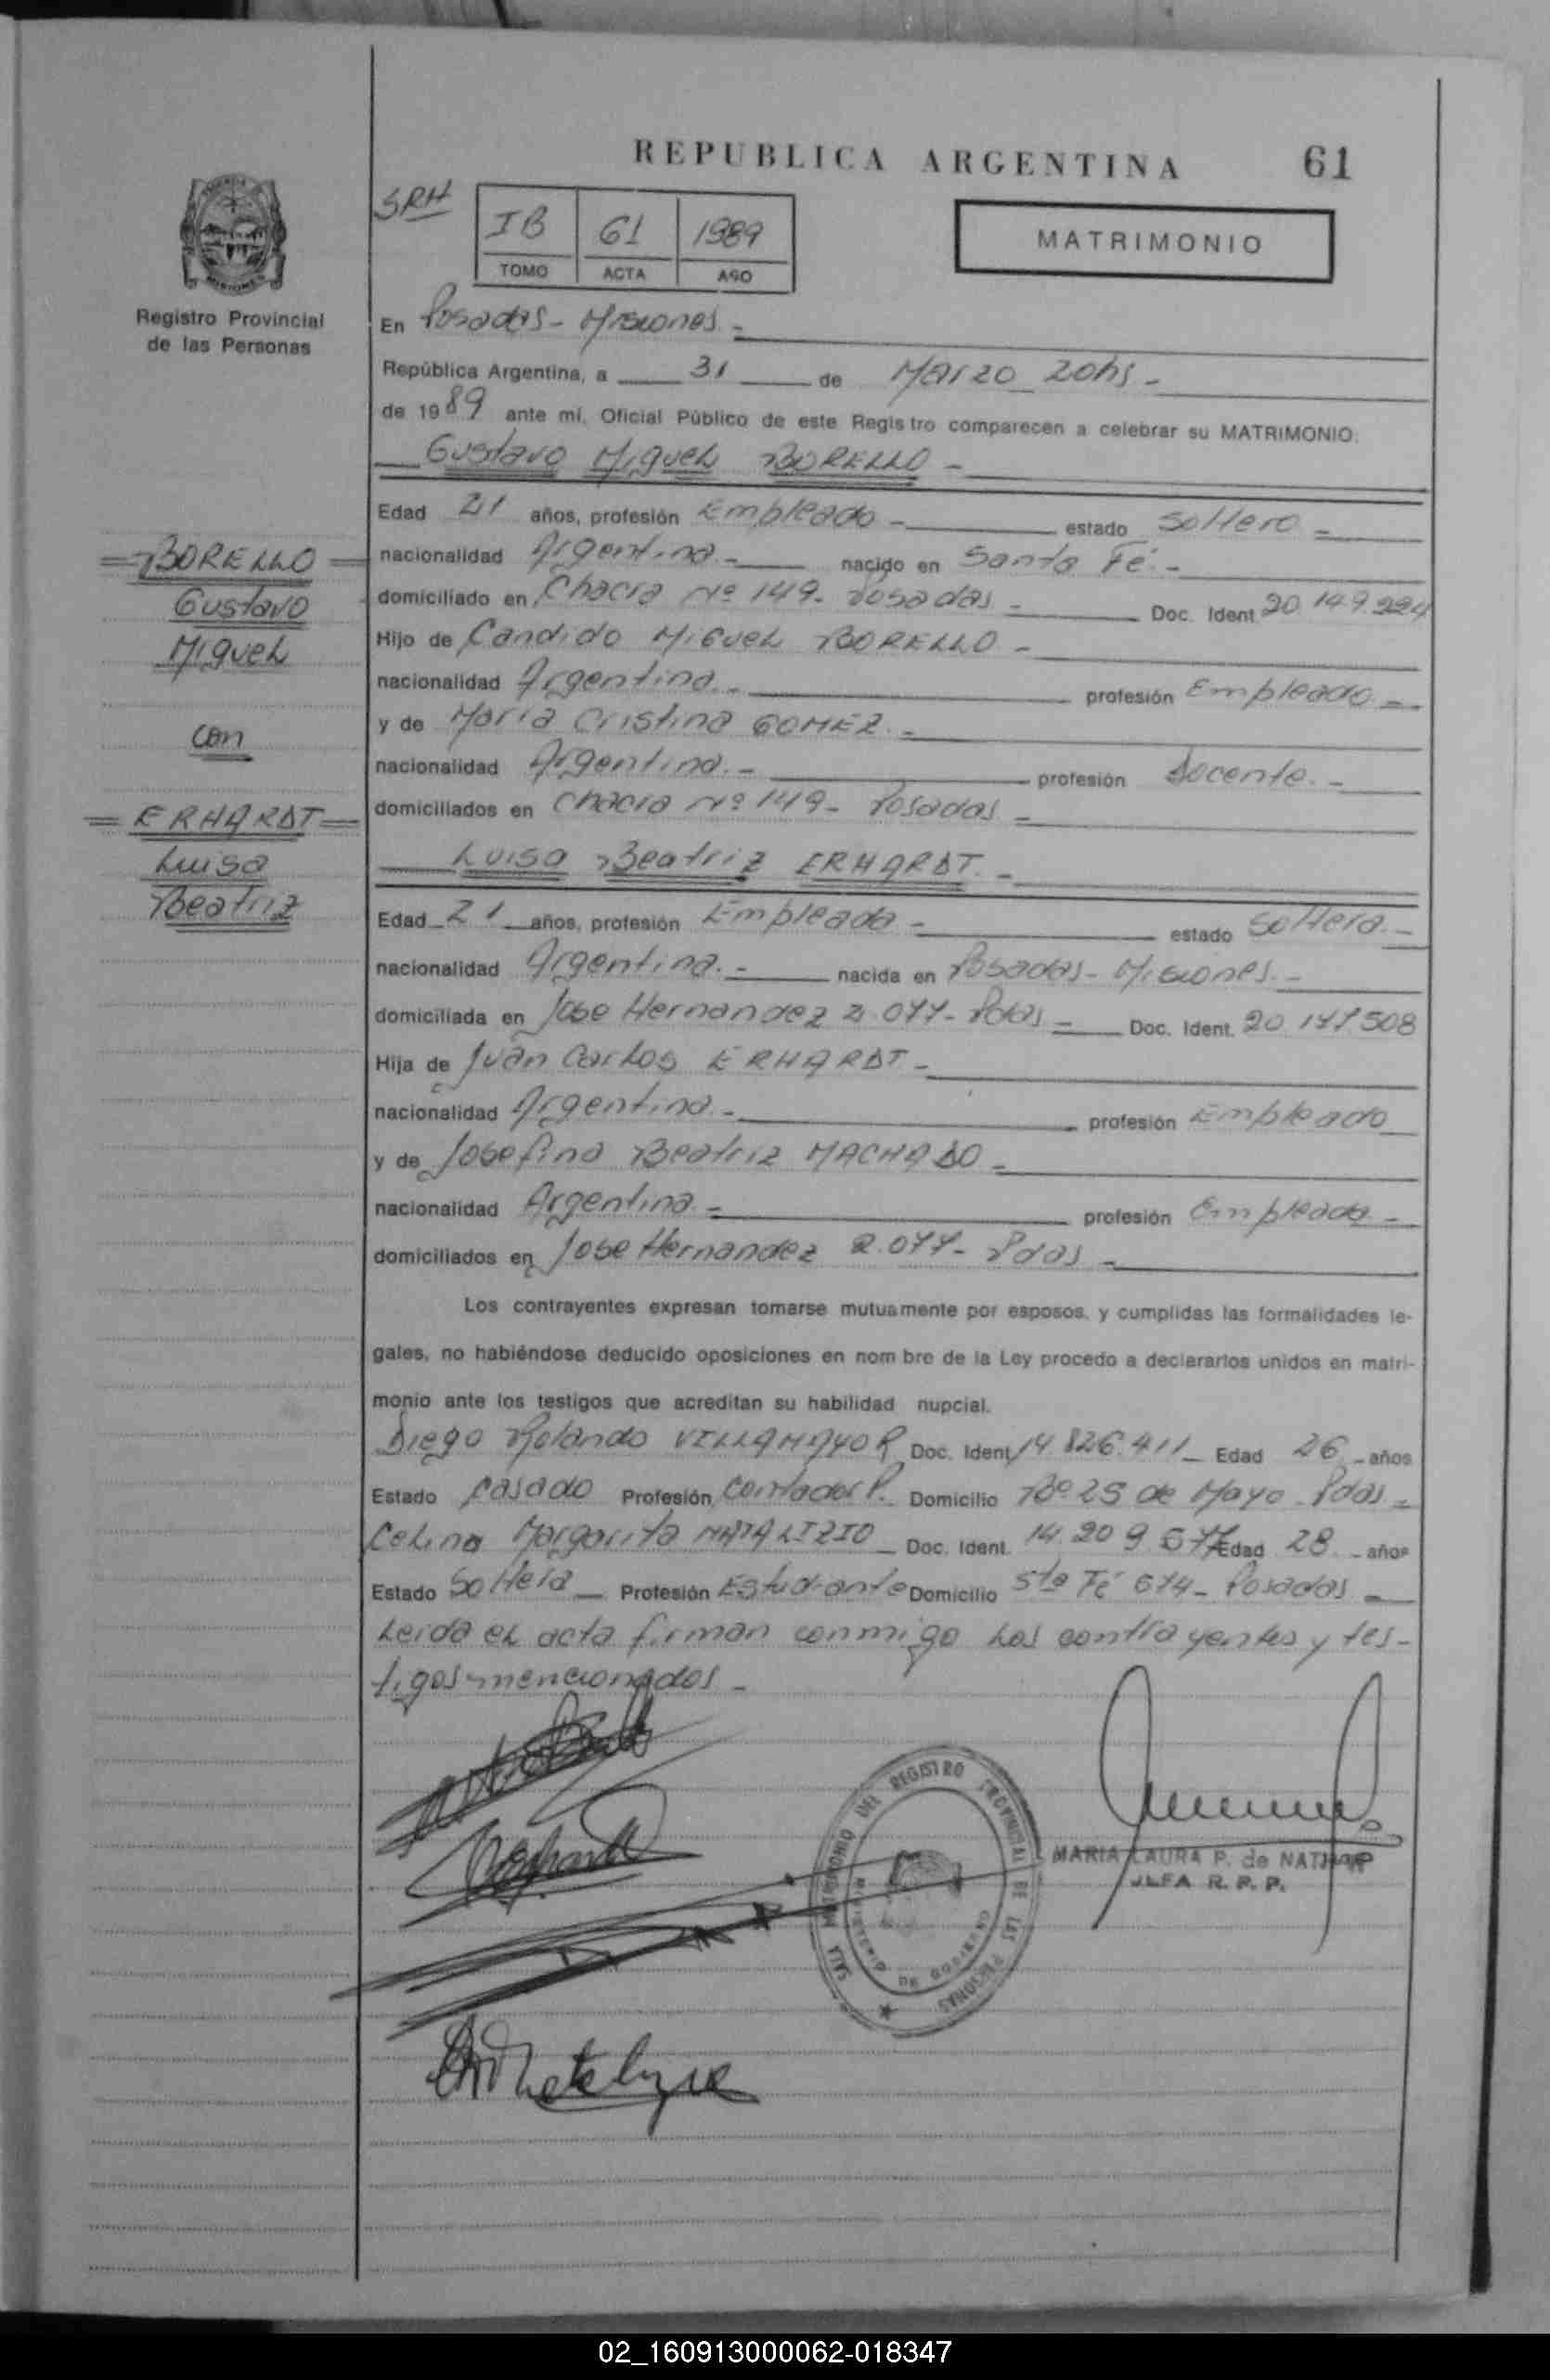 REPUBLICA ARGENTINA
61
SRH
IB 61 1989
TOMO ACTA AÑO
MATRIMONIO
Registro Provincial
de las Personas
En Posadas - Misiones -
República Argentina, a 31 de Marzo 20hs -
de 1989 ante mi, Oficial Público de este Registro comparecen a celebrar su MATRIMONIO:
Gustavo Miguel BORELLO -
Edad 21 años, profesión Empleado - estado Soltero -
nacionalidad Argentina - nacido en Santa Fé -
domiciliado en Chacra Nº 149 - Posadas - Doc. Ident. 20.149.224
Hijo de Candido Miguel BORELLO -
nacionalidad Argentina - profesión Empleado -
y de Maria Cristina GOMEZ -
nacionalidad Argentina - profesión Docente -
domiciliados en Chacra Nº 149 - Posadas -
Luisa Beatriz ERHARDT -
Edad 21 años, profesión Empleada - estado Soltera -
nacionalidad Argentina - nacida en Posadas - Misiones -
domiciliada en Jose Hernandez 2.077 - Pdas - Doc. Ident. 20.171.508
Hija de Juan Carlos ERHARDT -
nacionalidad Argentina - profesión Empleado
y de Josefina Beatriz MACHADO -
nacionalidad Argentina - profesión Empleada -
domiciliados en Jose Hernandez 2.077 - Pdas -
Los contrayentes expresan tomarse mutuamente por esposos, y cumplidas las formalidades le-
gales, no habiéndose deducido oposiciones en nombre de la Ley procedo a declararlos unidos en matri-
monio ante los testigos que acreditan su habilidad nupcial.
Diego Rolando VILLAMAYOR Doc. Ident. 14.826.411 Edad 26 años
Estado Casado Profesión Contador P. Domicilio Bº 25 de Mayo - Pdas -
Celina Margarita MATALIZIO Doc. Ident. 14.209.577 Edad 28 años
Estado Soltera Profesión Estudiante Domicilio Sta Fé 674 - Posadas -
Leida el acta firman conmigo los contrayentes y tes-
tigos mencionados -
BORELLO
Gustavo
Miguel
con
ERHARDT
Luisa
Beatriz
SALA MATRIMONIO DEL REGISTRO PROVINCIAL DE LAS PERSONAS
MINISTERIO DE GOBIERNO
MARIA LAURA P. de
JEFA R. P. P.
02_160913000062-018347